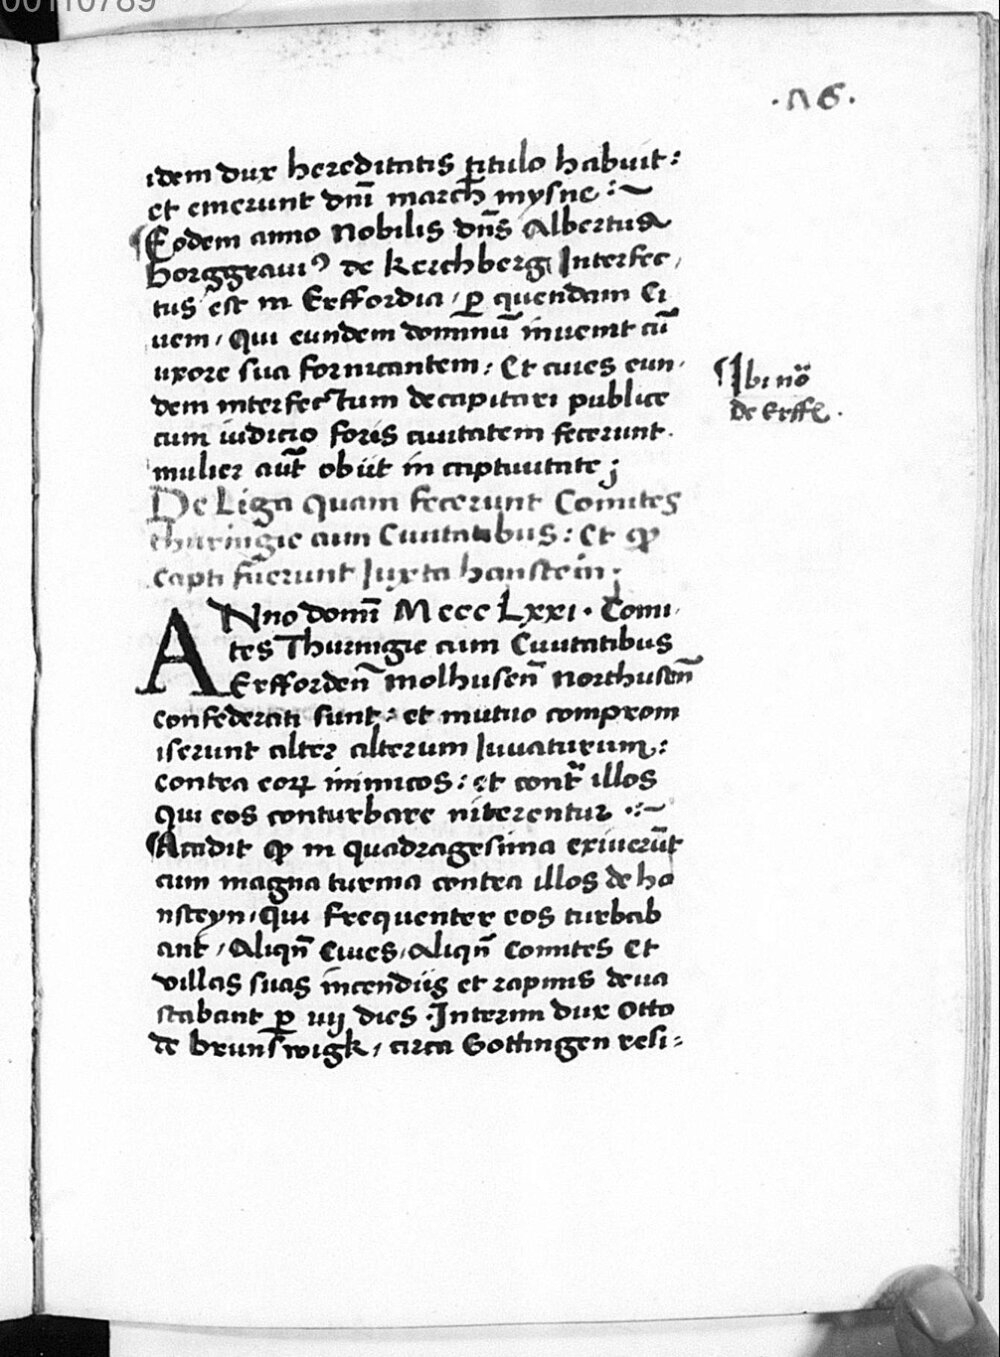 00110789
.76.
idem dux hereditatis titulo habuit:
et emerunt dnī march̄ mysne :~
¶Eodem anno nobilis dn̄s Albertus
borggrauiꝰ de kerchberg Interfec,
tus est in Erffordia, ꝑ quendam Ci
uem, Qui eundem dominū inuenit cū
uxore sua fornicantem: Et ciues eun,
dem interfectum decapitari publice
cum iudicio foris ciuitatem fecerunt.
mulier aūt obiit in captiuitate;
De Liga quam fecerunt Comites
thuringie cum Ciuitatibus: Et ꝙ
capti fuerunt Iuxta hanstein;
ANno domī Mccc Lxxi. Comi,
tes Thuringie cum Ciuitatibus
Erfforden̄ molhusen̄ northusen̄
confederati sunt: et mutuo comprom
iserunt alter alterum Iuuaturum:
contra eoꝝ inimicos: et contᷓ illos
Qui eos conturbare niterentur .:~
¶Accidit ꝙ in quadragesima exiuerūt
cum magna turma contra illos de ha
nsteyn, Qui frequenter eos turbab
ant, Aliqn̄ Ciues, Aliqn̄ Comites Et
villas suas incendiis et rapinis deua
stabant ꝑ vij dies. Interim dux Otto
de brunswigk, circa Gottingen resi:
¶Ibi nō
de Erff.